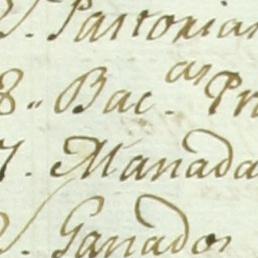 . Pastorian
8.. Bac.as Pr
7. Manada
. Ganados